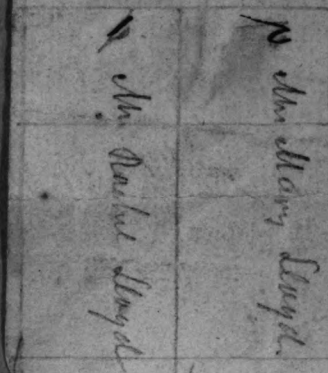 2 Mrs Mary Lloyd
1 Mrs Rachel Lloyd